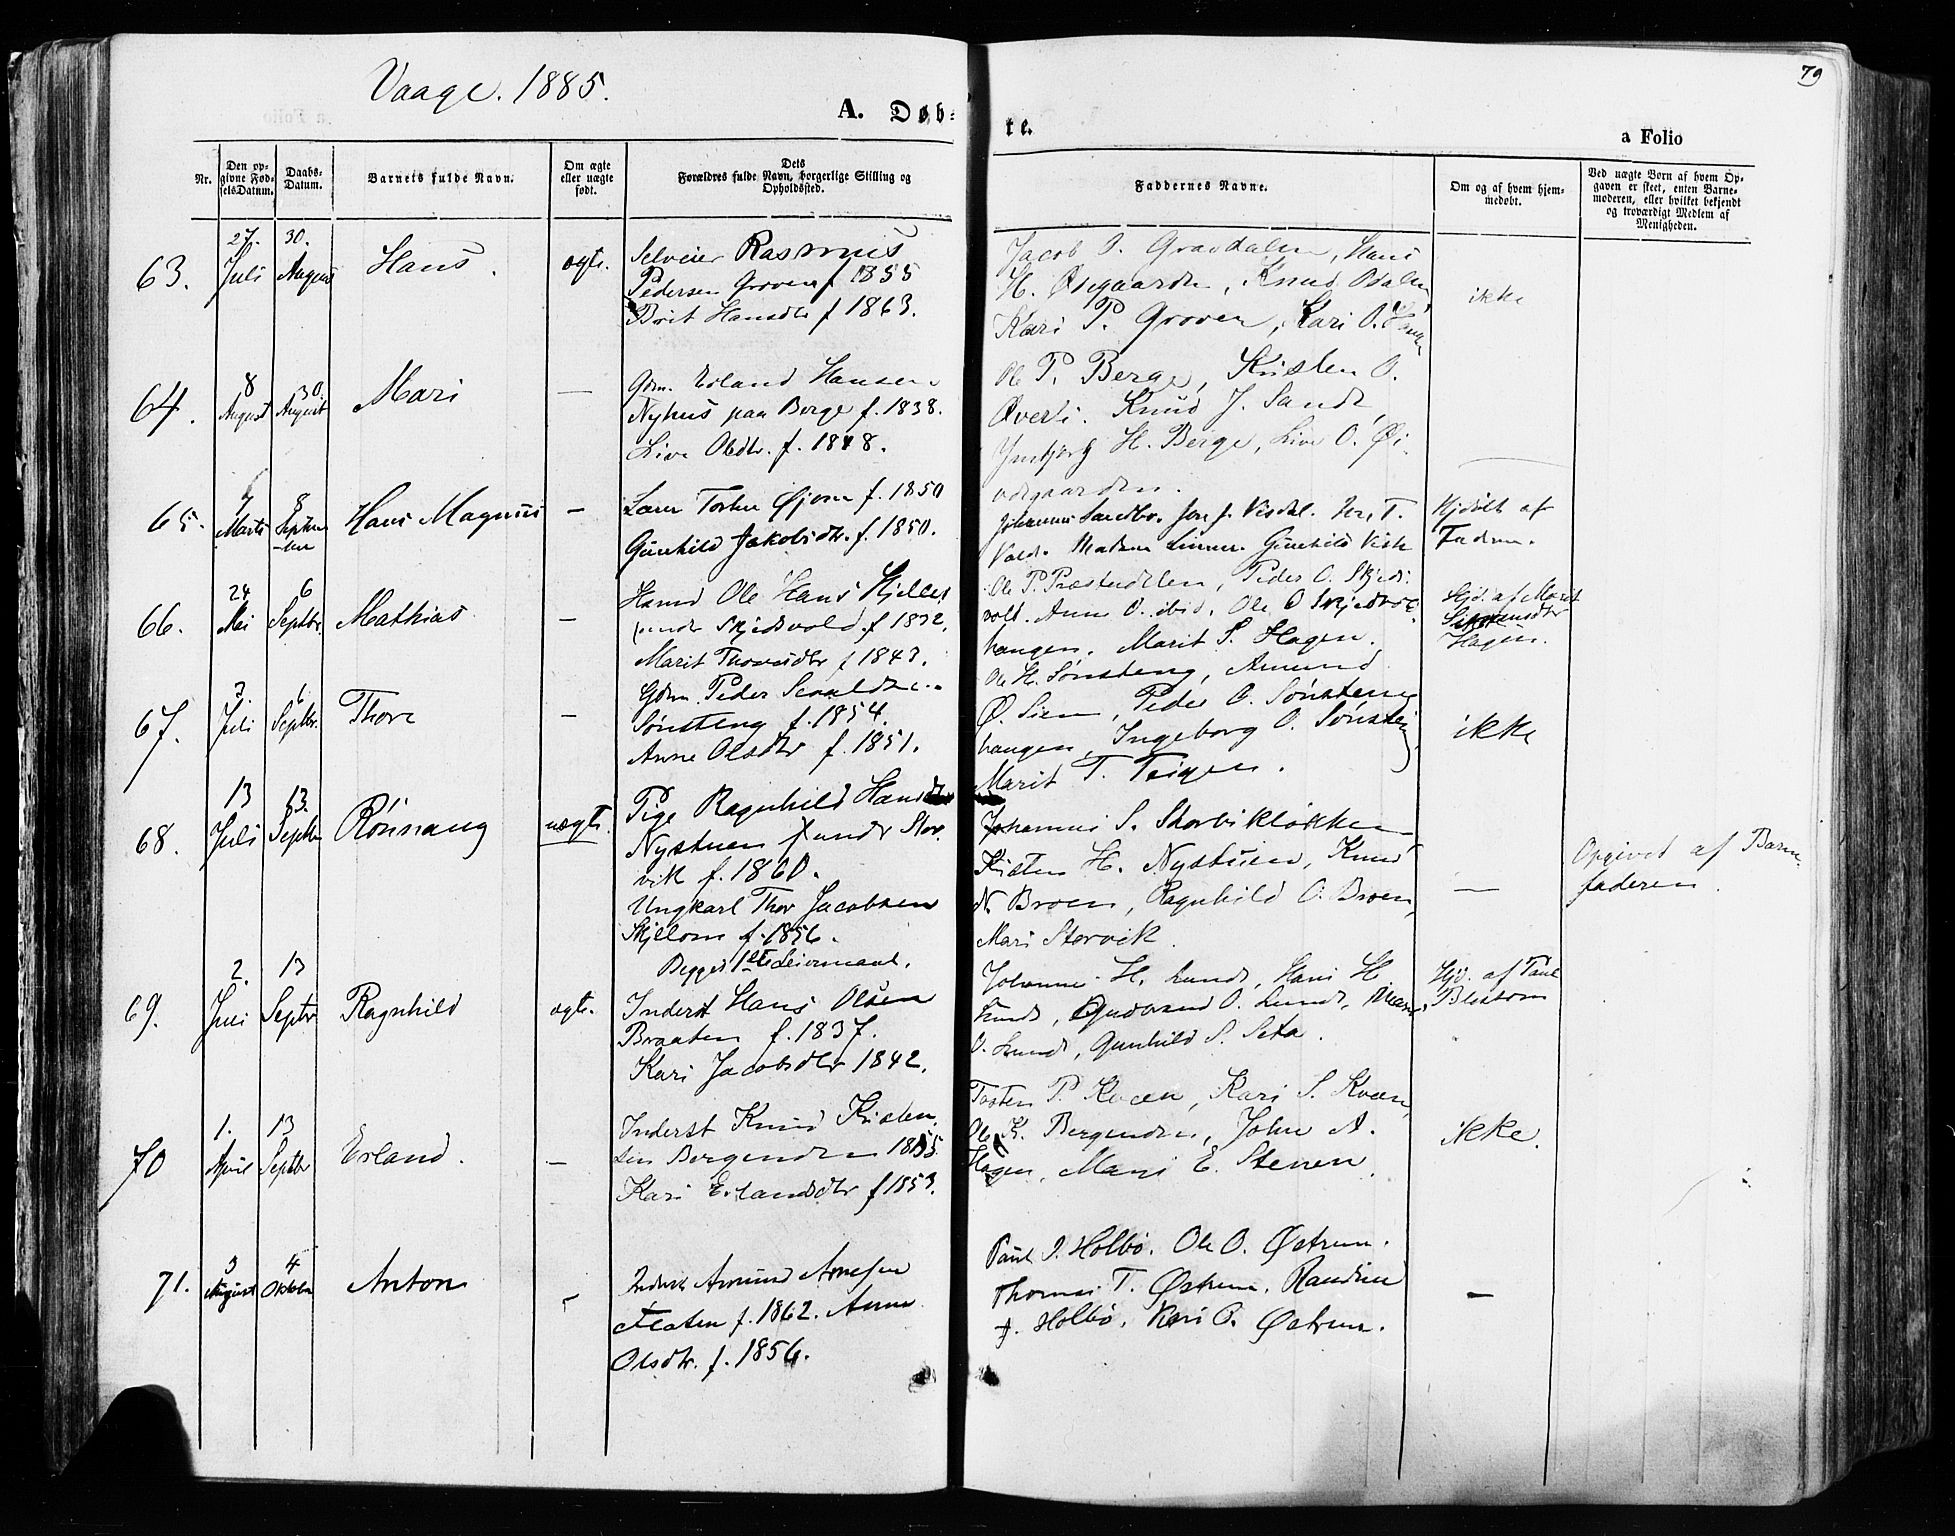 Vaage. 1885.
79
A. Døb-
te.
a Folio
Nr.
Den op-
givne Fød-
selsDatum.
Daabs-
Datum.
Barnets fulde Navn.
Om ægte
eller uægte
født.
Dets
Forældres fulde Navn, borgerlige Stilling og
Opholdssted.
Faddernes Navne.
Om og af hvem hjem-
medøbt.
Ved uægte Born af hvem Op-
gaven er skeet, enten Barne-
moderen, eller hvilket bekjendt
og troværdigt Medlem af
Menigheden.
63.
27.
Juli
30.
August
Hans.
ægte.
Selveier Rasmus
Pedersen Groven f 1855
Brit Hansdtr f 1863.
Jacob O. Gravdalen, Hans
H. Øiegaarden, Knud
Kari P. Groven, Kari O.
ikke
64.
8
August
30.
August
Mari
—
Gdm. Erland Hansen
Nyhus paa Berge f. 1838.
Live Olsdtr. f. 1848.
Ole P. Berge, Kristen O.
Øverli. Knud J. Sande,
H. Berge, Live O. Øi-
degaarden.
65.
7
Marts
8
Septem
ber
Hans Magnus
—
Torsten Øjom f. 1850
Gunhild Jakobsdtr. f. 1850.
Johannes Sandbo. Jon J. Visdal.
Gunhild
Hjdøbt af
Faderen.
66.
24
Mai
6
Septbr.
Mathias
—
Husmd Ole Hans
under Skjedsvold f 1832.
Marit f 1843.
Ole P. Præstødelen, Peder O. Skjeds-
vold. Anne O. ibid. Ole O Skjedsvol
haugen, Marit S. Hagen.
Hjd. af Marit
Hagen.
67.
3.
Juli
6
Septbr.
Thore
—
Gdm. Peder
Sønsteng f. 1854.
Anne Olsdtr f. 1851.
Ole H. Sønsteng, Amund
Ø. Siem, Peder O. Sønsteng
haugen, Ingeborg O. Sønsteng
Marit T. Teigen.
ikke
68.
13
Juli
13.
Septbr
Rønnaug
uægte.
Pige Ragnhild Hansdtr
Nystuen under Stor-
vik f. 1860.
Ungkarl Thor Jacobsen
Skjellom f. 1856.
Begges 1ste Leiermaal.
Johannes S. Storvikløkken,
Kristen H. Nystuen, Knud
N. Broen, Ragnhild O. Broen,
Mari Storvik.
—
Opgivet af Barne-
faderen.
69.
2.
Juli
13
Septbr
Ragnhild
ægte.
Inderst Hans Olsen
Braaten f. 1837.
Kari Jacobsdtr 1842.
Johanne H. Lunde, Hans H
Lunde, Gudbrand O. Lunde,
O. Lunde, Gunhild S. Seta.
Hjd. af Paul
70
1.
April
13
Septbr
Erland.
—
Inderst Knud Kristen-
sen Bergenden 1855
Kari Erlandsdtr f 1853.
Torsten P. Kvæen, Kari S. Kvæen,
Ole K. Bergenden, John A.
Hagen, Mari E. Stenen.
ikke.
71.
3
August
4
Oktober
Anton
Inderst Amund Arnesen
Flaten f. 1862. Anne
Olsdtr. f. 1856.
Paul I. Holbø. Ole O. Østrem.
Thomas T. Østrem. Randine
J. Holbø. Kari O. Østrem.
—